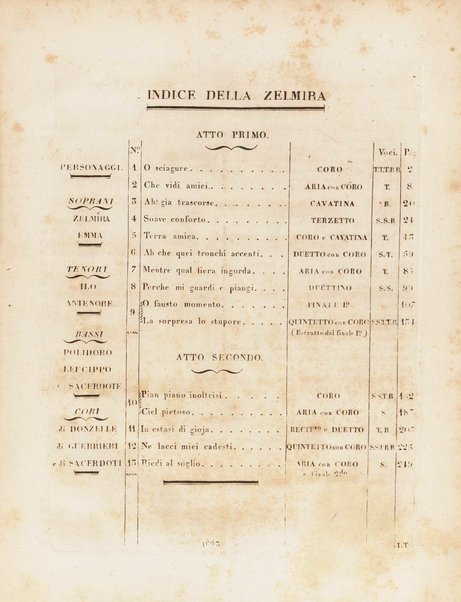 INDICE DELLA ZELMIRA
ATTO PRIMO.
Nº Voci. Pag
PERSONAGGI. 1 O sciagure CORO T.T.T.B. 2
2 Che vidi amici ARIA con CORO T. 8
SOPRANI 3 Ah! gia trascorse CAVATINA B. 20
ZELMIRA 4 Soave conforto TERZETTO S.S.B 24
EMMA 5 Terra amica CORO e CAVATINA T. 43
6 Ah che quei tronchi accenti DUETTO con CORO S.T. 59
TENORI 7 Mentre qual fiera ingorda ARIA con CORO T. 85
ILO 8 Perche mi guardi e piangi DUETTINO S.S. 99
ANTENORE 9 O fausto momento FINALE Iº 107
La sorpresa lo stupore QUINTETTO con CORO S.S.T.T.B. 134
BASSI (Estratto dal finale Iº)
POLIDORO ATTO SECONDO.
LEUCIPPO
SACERDOTE 10 Pian piano inoltrisi CORO S.S.T.B
CORI Ciel pietoso ARIA con CORO S 187
di DONZELLE 11 In estasi di gioja RECITvo e DUETTO T.B 207
di GUERRIERI 12 Ne lacci miei cadesti QUINTETTO con CORO S.S.T.B.B. 225
e di SACERDOTI 13 Riedi al soglio ARIA con CORO S. 249
e Finale 2do